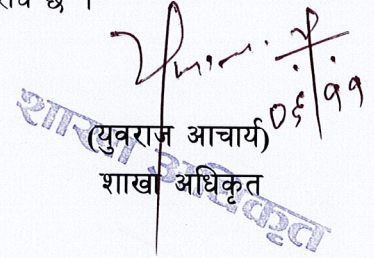 छ ।
०६/११
(युवराज आचार्य)
शाखा अधिकृत
शाखा अधिकृत